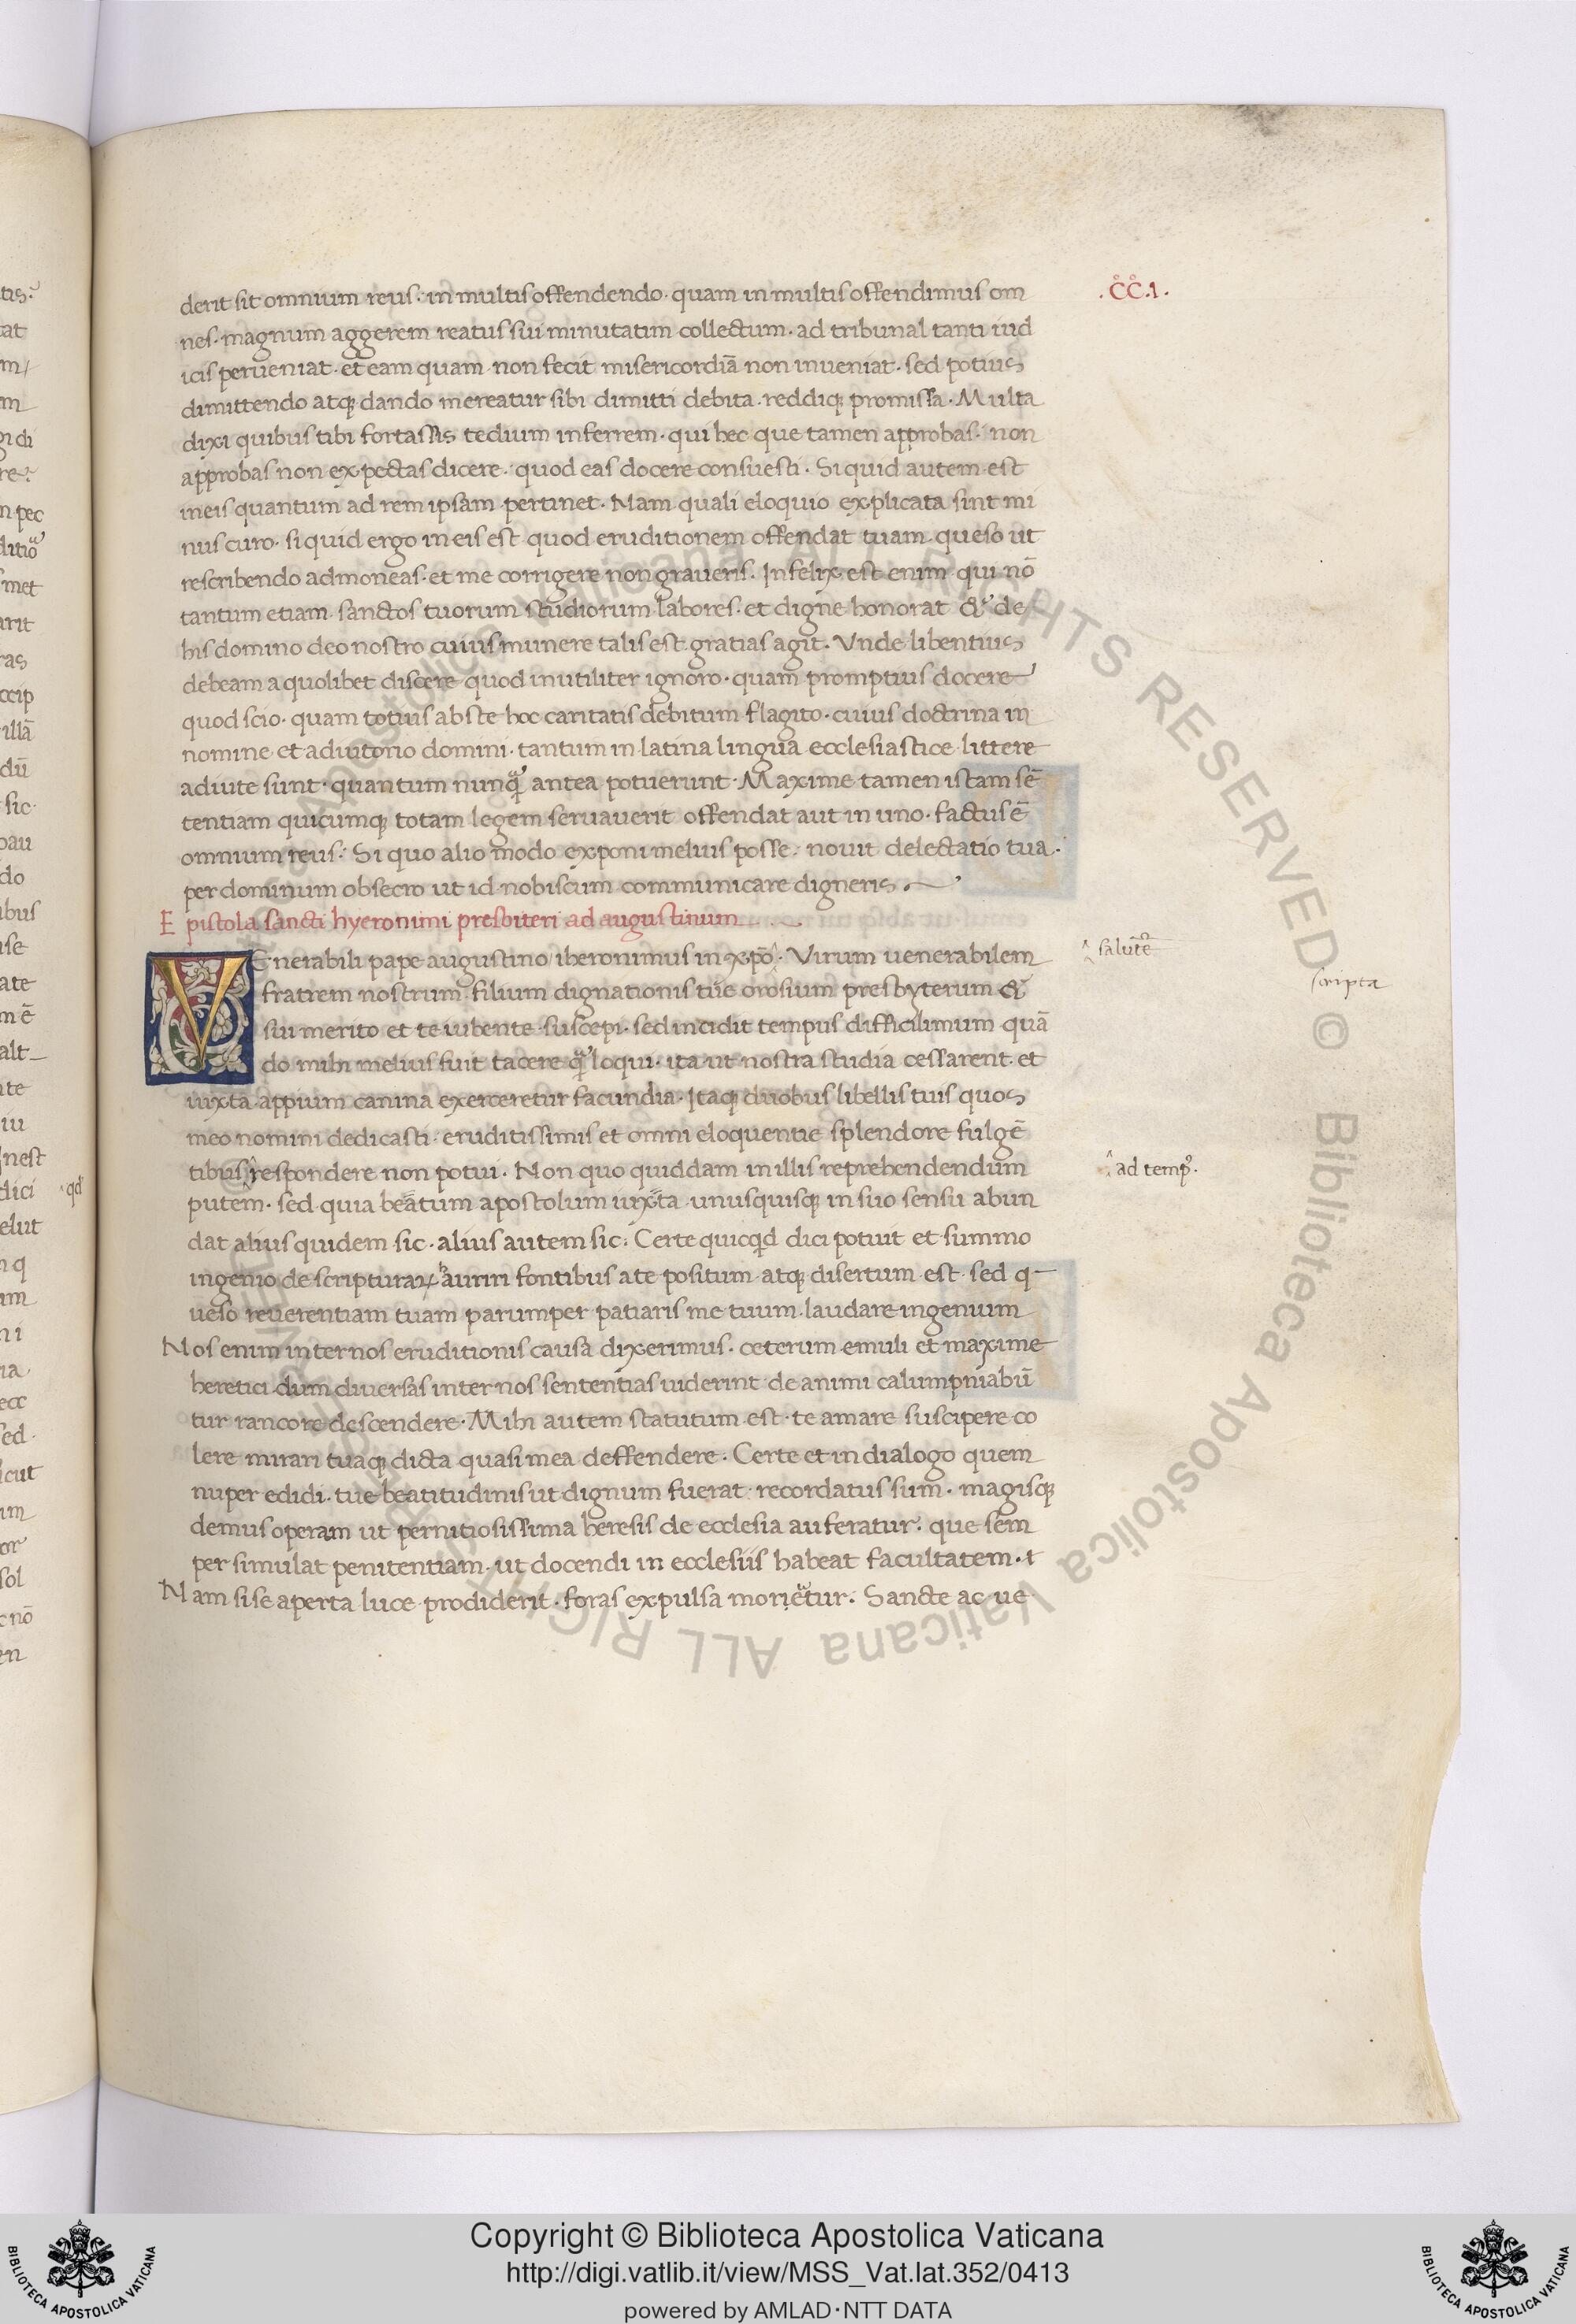 derit sit omnium reus: in multis offendendo. quam in multis offendimus om
nes. magnum aggerem reatus sui minutatim collectum. ad tribunal tanti iud
icis perveniat. et eam quam non fecit misericordiā non inveniat. sed potius
dimittendo atq; dando mereatur sibi dimitti debita. reddiq; promissa. Multa
dixi quibus tibi fortassis tedium inferrem. qui hec que tamen approbas: non
approbas non expectas dicere. quod eas docere consuesti. Si quid autem est
in eis quantum ad rem ipsam pertinet. Nam quali eloquio explicata sint mi
nus curo. si quid ergo in eis est quod eruditionem offendat tuam. queso ut
rescribendo admoneas. et me corrigere non graveris. Infelix est enim qui nō
tantum etiam sanctos tuorum studiorum labores. et digne honorat & de
his domino deo nostro cuius munere talis est gratias agit. Unde libentius
debeam a quolibet discere quod inutiliter ignoro. quam promptius docere
quod scio. quam totius abs te hoc caritatis debitum flagito. cuius doctrina in
nomine et adiutorio domini. tantum in latina lingua ecclesiastice littere
adiute sunt. quantum nunq̃ antea potuerunt. Maxime tamen istam sē
tentiam quicumq; totam legem servaverit offendat aut in uno. factus ē
omnium reus: Si quo alio modo exponi melius posse: novit delectatio tua.
per dominum obsecro ut id nobiscum communicare digneris.
Epistola sancti hyeronimi presbiteri ad augustinum
VEnerabili pape augustino iheronimus in xpō. Virum uenerabilem
fratrem nostrum filium dignationis tue orosium presbyterum &
sui merito et te iubente suscepi. sed incidit tempus difficilimum quā
do mihi melius fuit tacere q̃ loqui. ita ut nostra studia cessarent. et
iuxta appium canina exerceretur facundia. Itaq; duobus libellis tuis quos
meo nomini dedicasti: eruditissimis et omni eloquentie splendore fulgē
tibus respondere non potui. Non quo quiddam in illis reprehendendum
putem. sed quia beatum apostolum iuxta unusquisq; in suo sensu abun
dat alius quidem sic. alius autem sic: Certe quicqd dici potuit et summo
ingenio de scripturaꝝ hauriri fontibus a te positum atq; disertum est. sed q
ueso reverentiam tuam parumper patiaris me tuum laudare ingenium
Nos enim inter nos eruditionis causa dixerimus. ceterum emuli et maxime
heretici dum diversas inter nos sententias viderint de animi calumpniabū
tur rancore descendere. Mihi autem statutum est te amare suscipere co
lere mirari tuaq; dicta quasi mea deffendere. Certe et in dialogo quem
nuper edidi. tue beatitudinis ut dignum fuerat recordatus sum. magisq;
demus operam ut pernitiosissima heresis de ecclesia auferatur. que sem
per simulat penitentiam. ut docendi in ecclesiis habeat facultatem.
Nam si se aperta luce prodiderit. foras expulsa morietur. Sancte ac ue
.CC.1.
salutē
scripta
ad temp9.
Copyright © Biblioteca Apostolica Vaticana
http://digi.vatlib.it/view/MSS_Vat.lat.352/0413
powered by AMLAD·NTT DATA
BIBLIOTECA APOSTOLICA VATICANA
BIBLIOTECA APOSTOLICA VATICANA